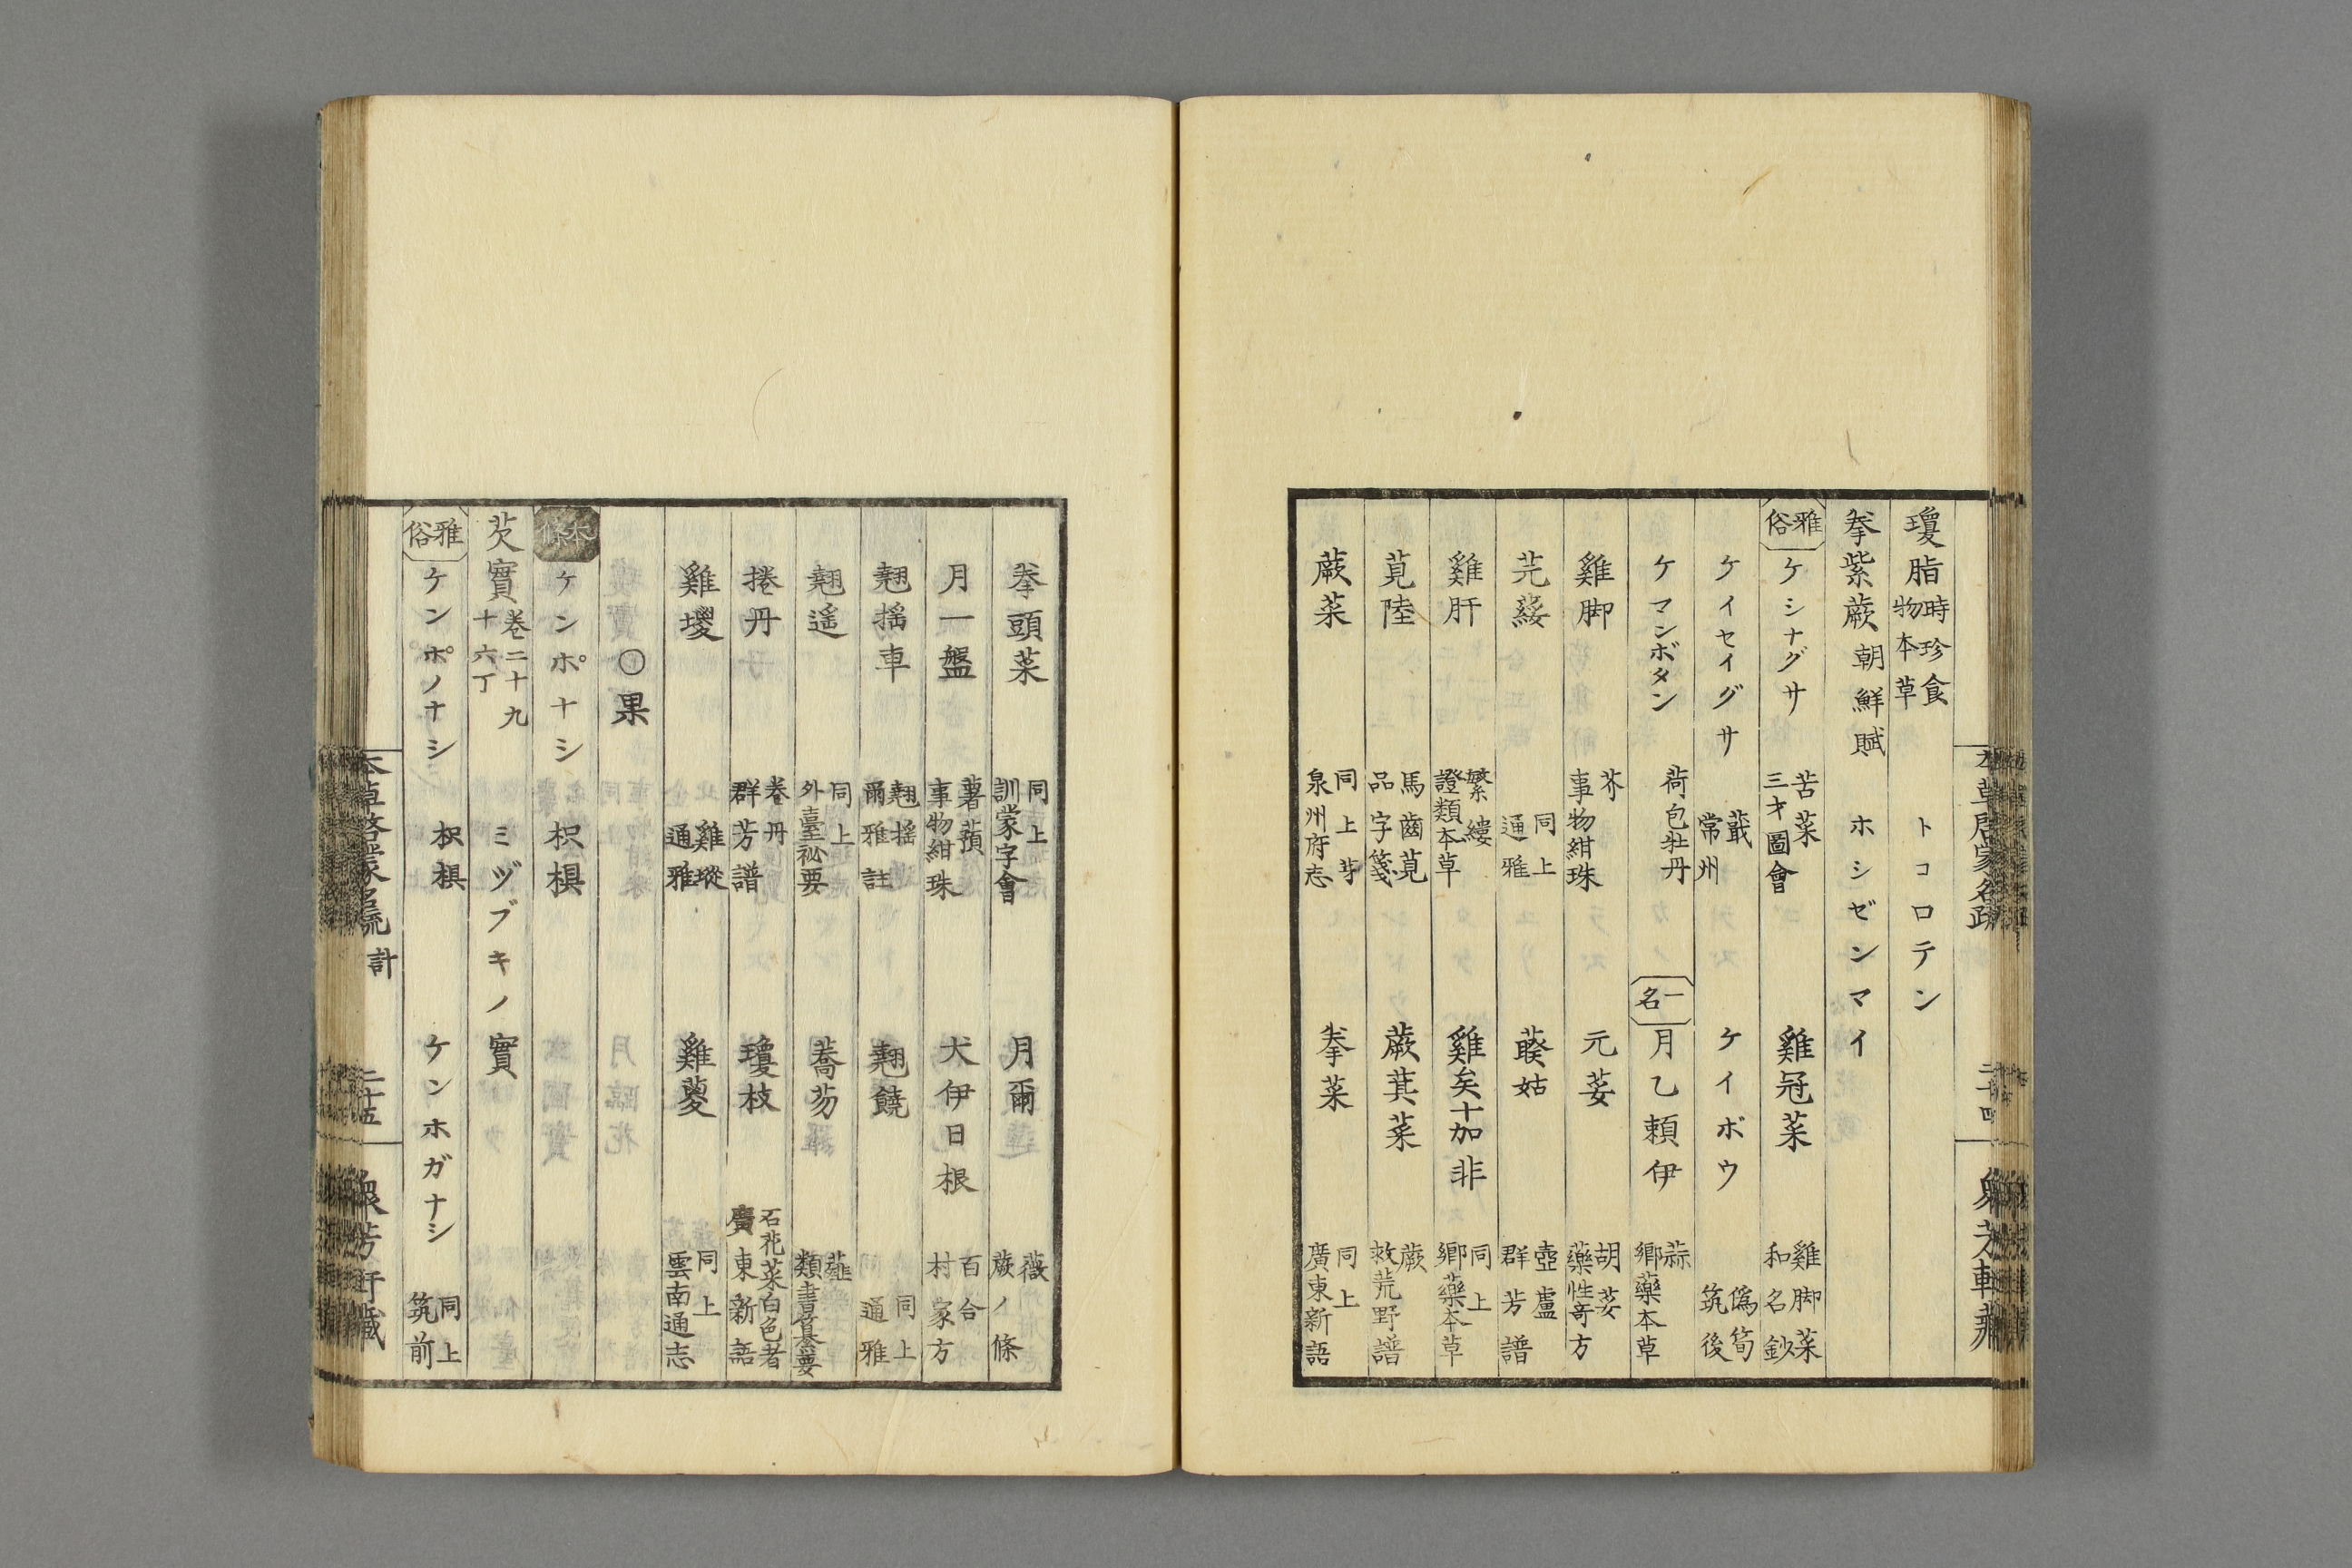 瓊脂 時珍食物本草 トコロテン
拳紫蕨 朝鮮賦 ホシゼンマイ
雅俗 ケシナグサ 苦菜 三才圖會 雞冠菜 雞脚菜 和名鈔
ケイセイグサ 蕺 常州 ケイボウ 僞筍 筑後
ケマンボタン 荷包牡丹 一名 月乙頼伊 蒜 鄉藥本草
雞脚 芥 事物紺珠 元荽 胡荽 藥性奇方
芫荽 同上 通雅 葔姑 壺盧 群芳譜
雞肝 繁縷 證類本草 雞矣十加非 同上 鄉藥本草
莧陸 馬齒莧 品字箋 蕨萁菜 蕨 救荒野譜
蕨菜 同上芽 泉州府志 拳菜 同上 廣東新語
拳頭菜 同上 訓蒙字會 月爾 薇 蕨ノ條
月一盤 薯蕷 事物紺珠 犬伊日根 百合 村家方
翹搖車 翹搖 爾雅註 翹饒 同上 通雅
翹遥 同上 外臺祕要 蕎芴 薤 類書纂要
捲丹 卷丹 群芳譜 瓊枝 石花菜白色者 廣東新語
雞㙡 雞㙡 通雅 雞葼 同上 雲南通志
〇果
本條 ケンポナシ 枳椇
芡實 卷二十九 十六丁 ミヅブキノ實
雅俗 ケンポノナシ 枳椇 ケンホガナシ 同上 筑前
本草啓蒙名疏 計 二十五 衆芳軒藏